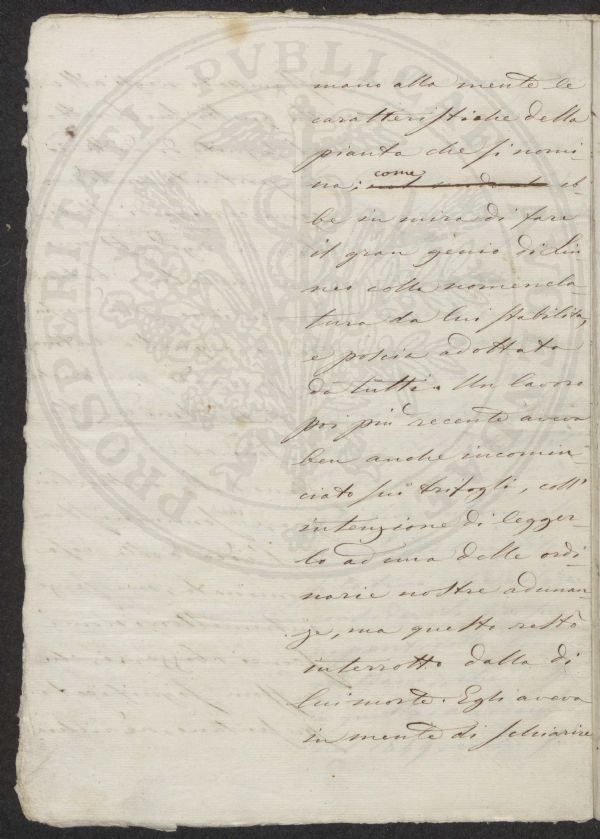 PROSPERITATI PUBLICAE AUGENDAE
mano alla mente le
caratteristiche della
pianta che si nomi
na; come eb-
be in mira di fare
il gran genio di Lin
neo colla nomencla
tura da lui stabilita,
e poscia adottata
da tutti. Un lavoro
poi più recente aveva
ben anche incomin
ciato sui trifogli, coll'
intenzione di legger
lo ad una delle ordi
narie nostre adunan
ze, ma questo restò
interrotto dalla di
lui morte. Egli aveva
in mente di schiarire